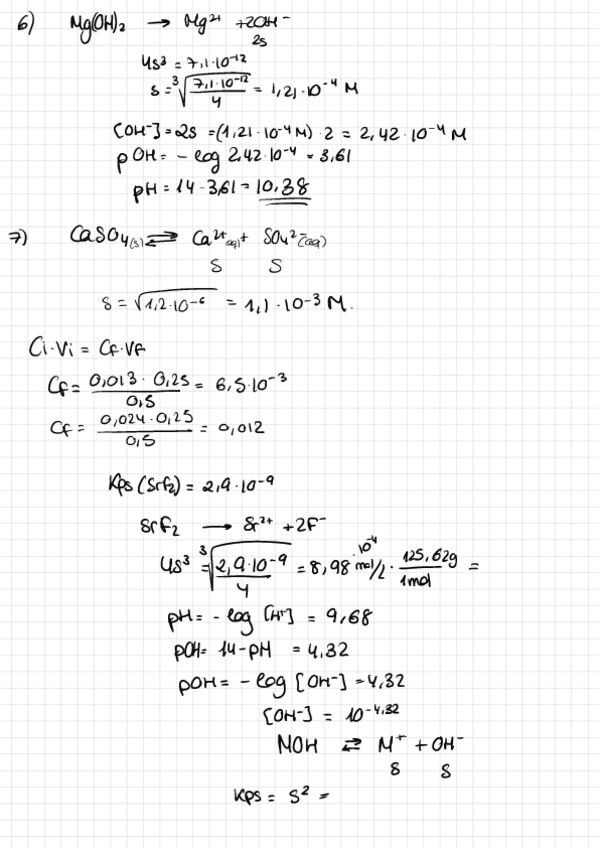 6) Mg(OH)₂ → Mg²⁺ + 2OH⁻
2s
4s³ = 7,1·10⁻¹²
s = ³√(7,1·10⁻¹²/4) = 1,21·10⁻⁴ M
[OH⁻] = 2s = (1,21·10⁻⁴ M)·2 = 2,42·10⁻⁴ M
pOH = -log 2,42·10⁻⁴ = 3,61
pH = 14-3,61 = 10,38
7) CaSO₄(s) ⇌ Ca²⁺(aq) + SO₄²⁻(aq)
S S
s = √1,2·10⁻⁶ = 1,1·10⁻³ M.
Ci·Vi = Cf·Vf
Cf = 0,013·0,25/0,5 = 6,5·10⁻³
Cf = 0,024·0,25/0,5 = 0,012
Kps (SrF₂) = 2,9·10⁻⁹
SrF₂ → Sr²⁺ + 2F⁻
4s³ = ³√(2,9·10⁻⁹/4) = 8,98·10⁻⁴ mol/l · 125,62g/1mol =
pH = -log [H⁺] = 9,68
pOH = 14-pH = 4,32
pOH = -log [OH⁻] = 4,32
[OH⁻] = 10⁻⁴,³²
MOH ⇌ M⁺ + OH⁻
s s
Kps = s² =